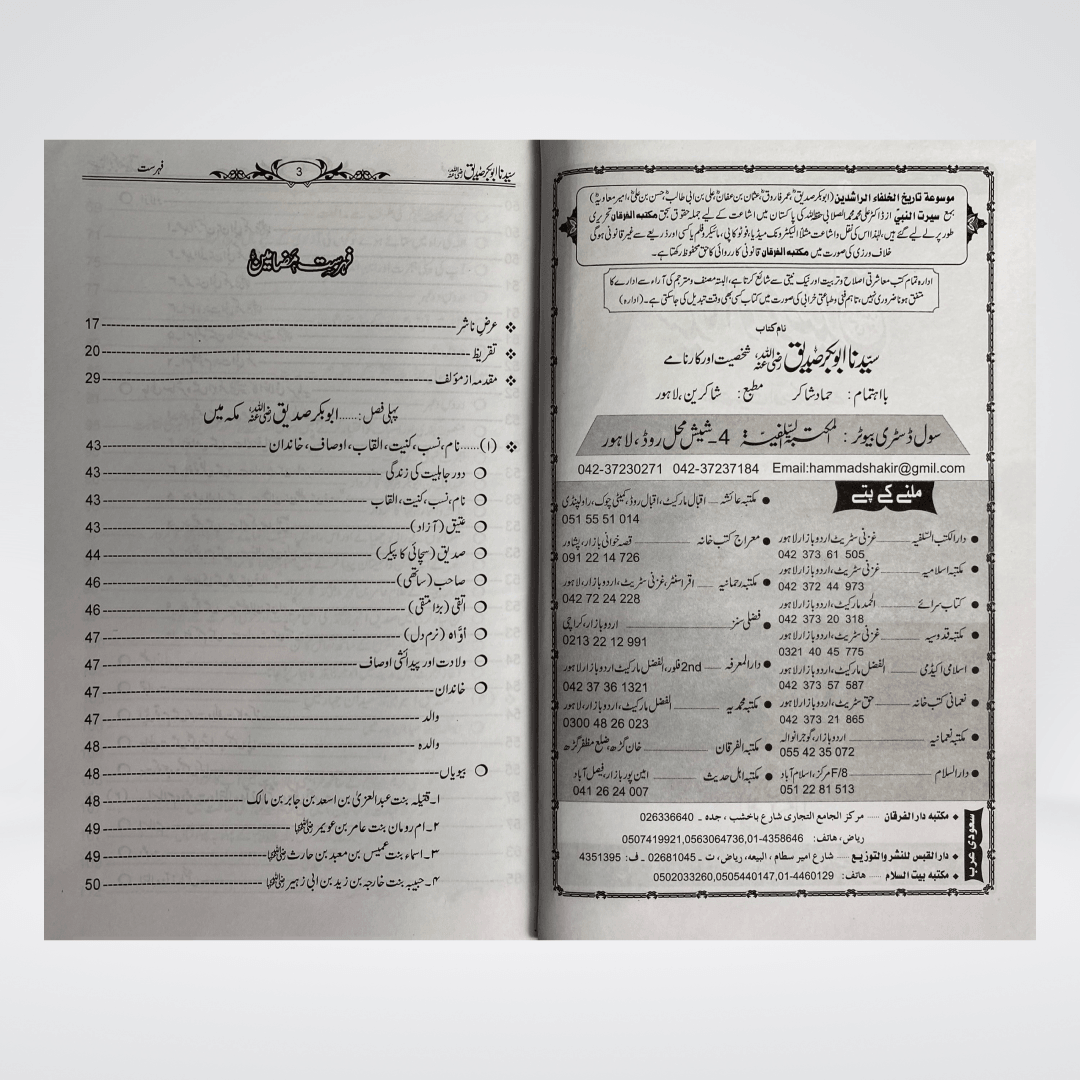 موسوعة تاریخ الخلفاء الراشدین (ابوبکر صدیقؓ، عمر فاروقؓ، عثمان بن عفانؓ، علی بن ابی طالبؓ، حسن بن علیؓ، امیر معاویہؓ)
بمع سیرت النبیؐ از ڈاکٹر علی محمد محمد الصلابی حفظہ اللہ کی پاکستان میں اشاعت کے لیے جملہ حقوق بحق مکتبہ الفرقان تحریری
طور پر لے لیے گئے ہیں، لہٰذا اس کی نقل و اشاعت مثلاً الیکٹرونک میڈیا، فوٹو کاپی، مائیکرو فلم یا کسی اور ذریعے سے غیر قانونی ہوگی
خلاف ورزی کی صورت میں مکتبہ الفرقان قانونی کارروائی کا حق محفوظ رکھتا ہے۔
ادارہ تمام کتب معاشرتی اصلاح و تربیت اور نیک نیتی سے شائع کرتا ہے، البتہ مصنف و مترجم کی آراء سے ادارے کا
متفق ہونا ضروری نہیں، تاہم فنی و طباعتی خرابی کی صورت میں کتاب کسی بھی وقت تبدیل کی جاسکتی ہے۔ (ادارہ)
نام کتاب
سیّدنا ابوبکر صدیق رضی اللہ عنہ شخصیت اور کارنامے
بااہتمام: حماد شاکر مطبع: شاکرین، لاہور
سول ڈسٹری بیوٹر: المکتبۃ السّلفیۃ 4۔شیش محل روڈ، لاہور
042-37230271 042-37237184 Email:hammadshakir@gmil.com
ملنے کے پتے
● دارالکتب السلفیہ غزنی سٹریٹ اردو بازار لاہور
042 373 61 505
● مکتبہ اسلامیہ غزنی سٹریٹ، اردو بازار لاہور
042 372 44 973
● کتاب سرائے الحمد مارکیٹ، اردو بازار لاہور
042 373 20 318
● مکتبہ قدوسیہ غزنی سٹریٹ، اردو بازار لاہور
0321 40 45 775
● اسلامی اکیڈمی الفضل مارکیٹ، اردو بازار لاہور
042 373 57 587
● نعمانی کتب خانہ حق سٹریٹ، اردو بازار لاہور
042 373 21 865
● مکتبہ نعمانیہ اردو بازار، گوجرانوالہ
055 42 35 072
● دارالسلام F/8 مرکز، اسلام آباد
051 22 81 513
● مکتبہ عائشہ اقبال مارکیٹ، اقبال روڈ، کمیٹی چوک، راولپنڈی
051 55 51 014
● معراج کتب خانہ قصہ خوانی بازار، پشاور
091 22 14 726
● مکتبہ رحمانیہ اقرا سنٹر، غزنی سٹریٹ، اردو بازار، لاہور
042 72 24 228
● فضلی سنز اردو بازار، کراچی
0213 22 12 991
● دارالمعرفہ 2nd فلور، الفضل مارکیٹ اردو بازار لاہور
042 37 36 1321
● مکتبہ محمدیہ الفضل مارکیٹ، اردو بازار، لاہور
0300 48 26 023
● مکتبہ الفرقان خان گڑھ، ضلع مظفر گڑھ
● مکتبہ اہل حدیث امین پور بازار، فیصل آباد
041 26 24 007
سعودی عرب
♦ مکتبہ دارالفرقان ...... مرکز الجامع التجاری شارع باخشب، جدہ ۔ 026336640
ریاض، ہاتف: 0507419921,0563064736,01-4358646
♦ دارالقبس للنشر والتوزیع ...... شارع امیر سطام، البیعہ، ریاض، ت ۔ 02681045 ۔ ف: 4351395
♦ مکتبہ بیت السلام ...... ہاتف: 0502033260,0505440147,01-4460129
سیّدنا ابوبکر صدیق رضی اللہ عنہ 3 فہرست
فہرست مضامین
❖ عرض ناشر 17
❖ تقریظ 20
❖ مقدمہ از مؤلف 29
پہلی فصل:......ابوبکر صدیق رضی اللہ عنہ مکہ میں
❖ (۱)......نام، نسب، کنیت، القاب، اوصاف، خاندان 43
○ دور جاہلیت کی زندگی 43
○ نام، نسب، کنیت، القاب 43
○ عتیق (آزاد) 43
○ صدیق (سچائی کا پیکر) 44
○ صاحب (ساتھی) 46
○ اتقی (بڑا متقی) 46
○ اوّاہ (نرم دل) 47
○ ولادت اور پیدائشی اوصاف 47
○ خاندان 47
والد 47
والدہ 48
○ بیویاں 48
۱۔ قتیلہ بنت عبدالعزیٰ بن اسعد بن جابر بن مالک 48
۲۔ ام رومان بنت عامر بن عویمر رضی اللہ عنہا 49
۳۔ اسماء بنت عمیس بن معبد بن حارث رضی اللہ عنہا 49
۴۔ حبیبہ بنت خارجہ بن زید بن ابی زہیر رضی اللہ عنہا 50